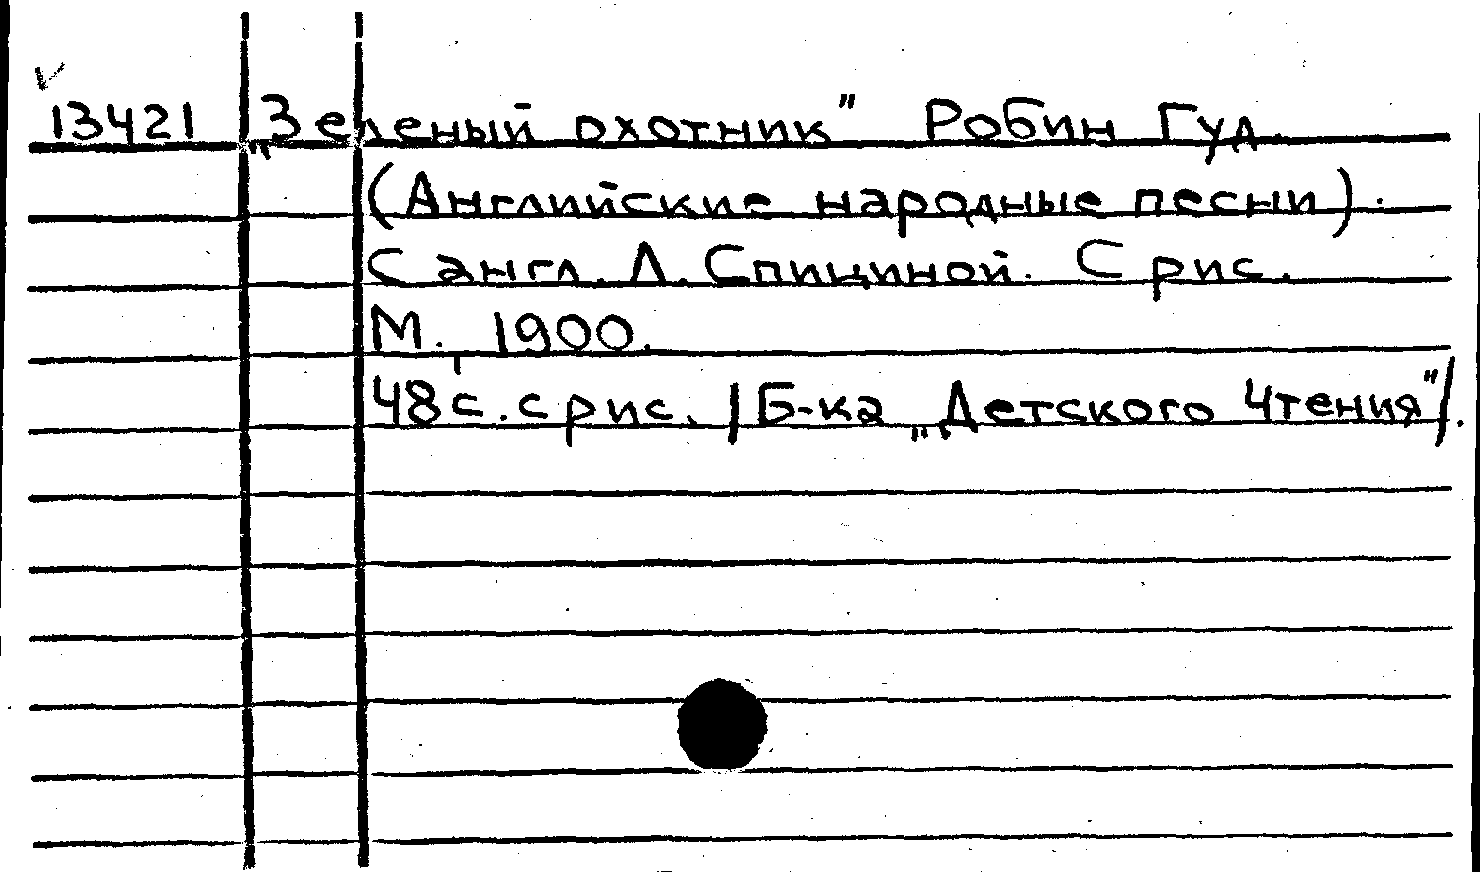 13421 „Зеленый охотник" Робин Гуд.
(Английские народные песни).
С англ. Л. Спициной. С рис.
М., 1900.
48 с. с рис. /Б-ка „Детского Чтения"/.